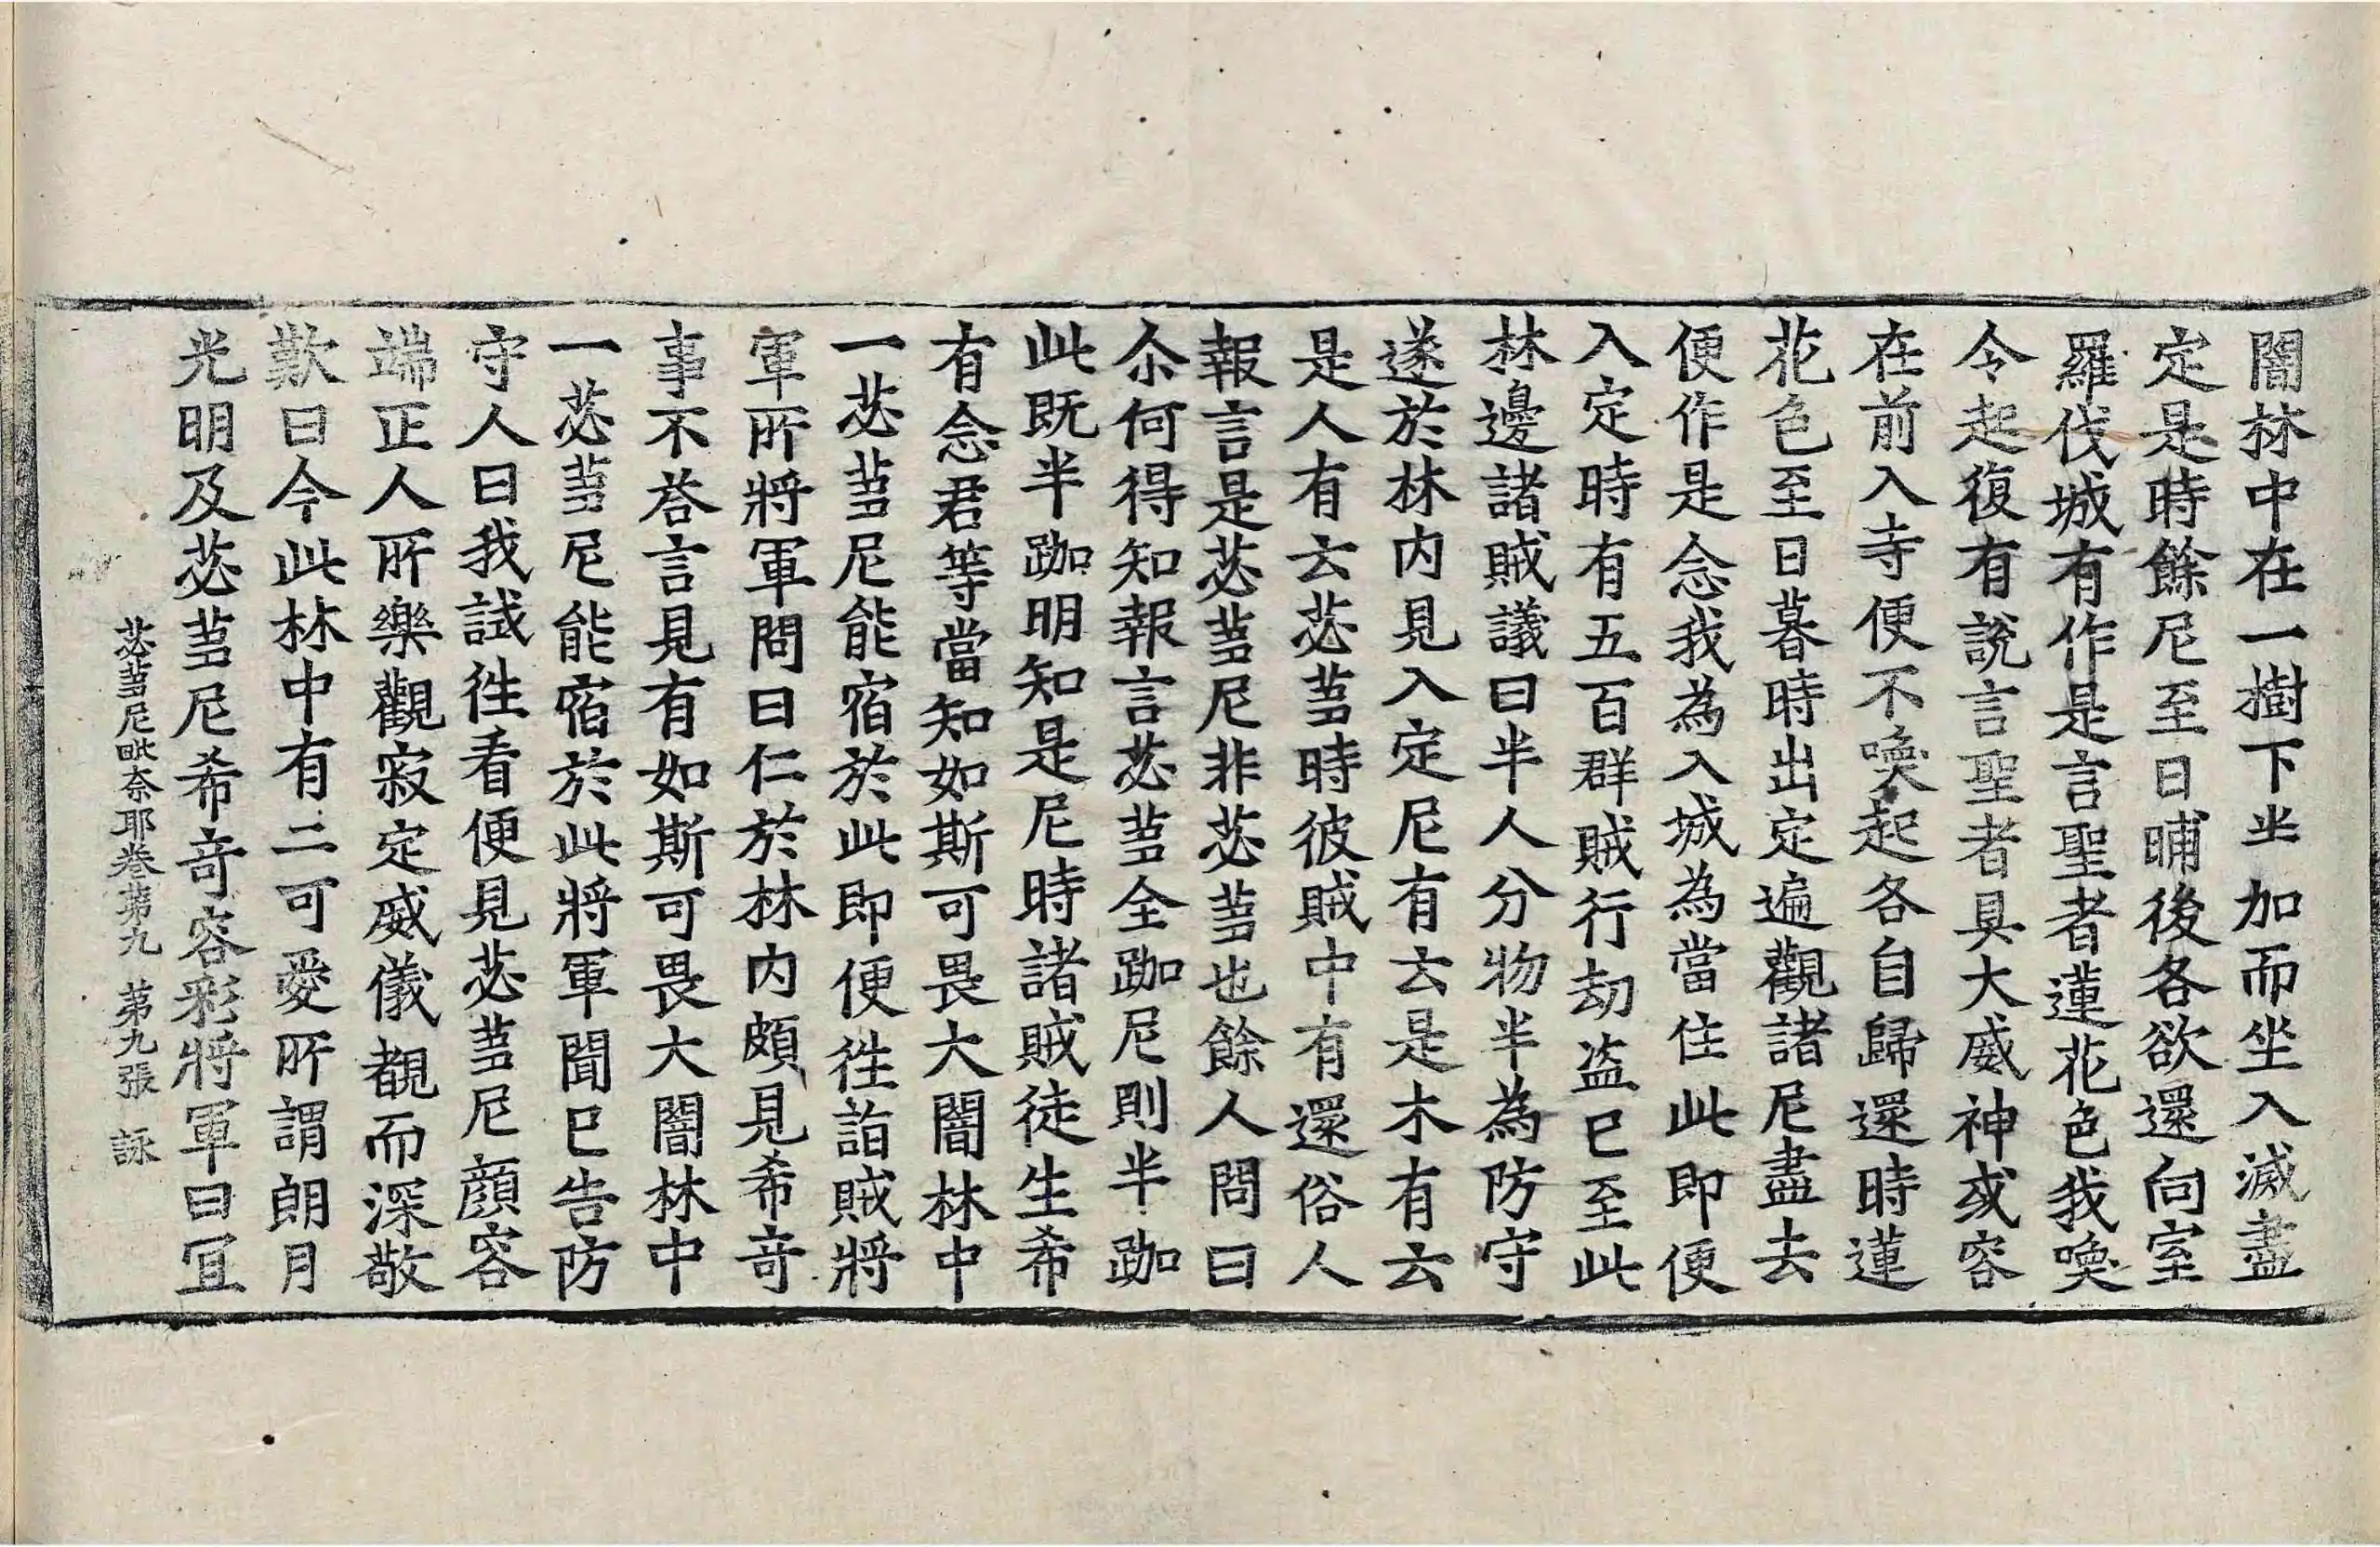 闇林中在一樹下半加而坐入滅盡
定是時餘尼至日晡後各欲還向室
羅伐城有作是言聖者蓮花色我喚
令起復有說言聖者具大威神或容
在前入寺便不喚起各自歸還時蓮
花色至日暮時出定遍觀諸尼盡去
便作是念我為入城為當住此即便
入定時有五百群賊行劫盜已至此
林邊諸賊議曰半人分物半為防守
遂於林內見入定尼有云是木有云
是人有云苾芻時彼賊中有還俗人
報言是苾芻尼非苾芻也餘人問曰
尒何得知報言苾芻全跏尼則半跏
此既半跏明知是尼時諸賊徒生希
有念君等當知如斯可畏大闇林中
一苾芻尼能宿於此即便往詣賊將
軍所將軍問曰仁於林內頗見希奇
事不荅言見有如斯可畏大闇林中
一苾芻尼能宿於此將軍聞已告防
守人曰我試往看便見苾芻尼顏容
端正人所樂觀寂定威儀覩而深敬
歎曰今此林中有二可愛所謂朗月
光明及苾芻尼希奇容彩將軍曰冝
苾芻尼毗奈耶卷第九 第九張 詠